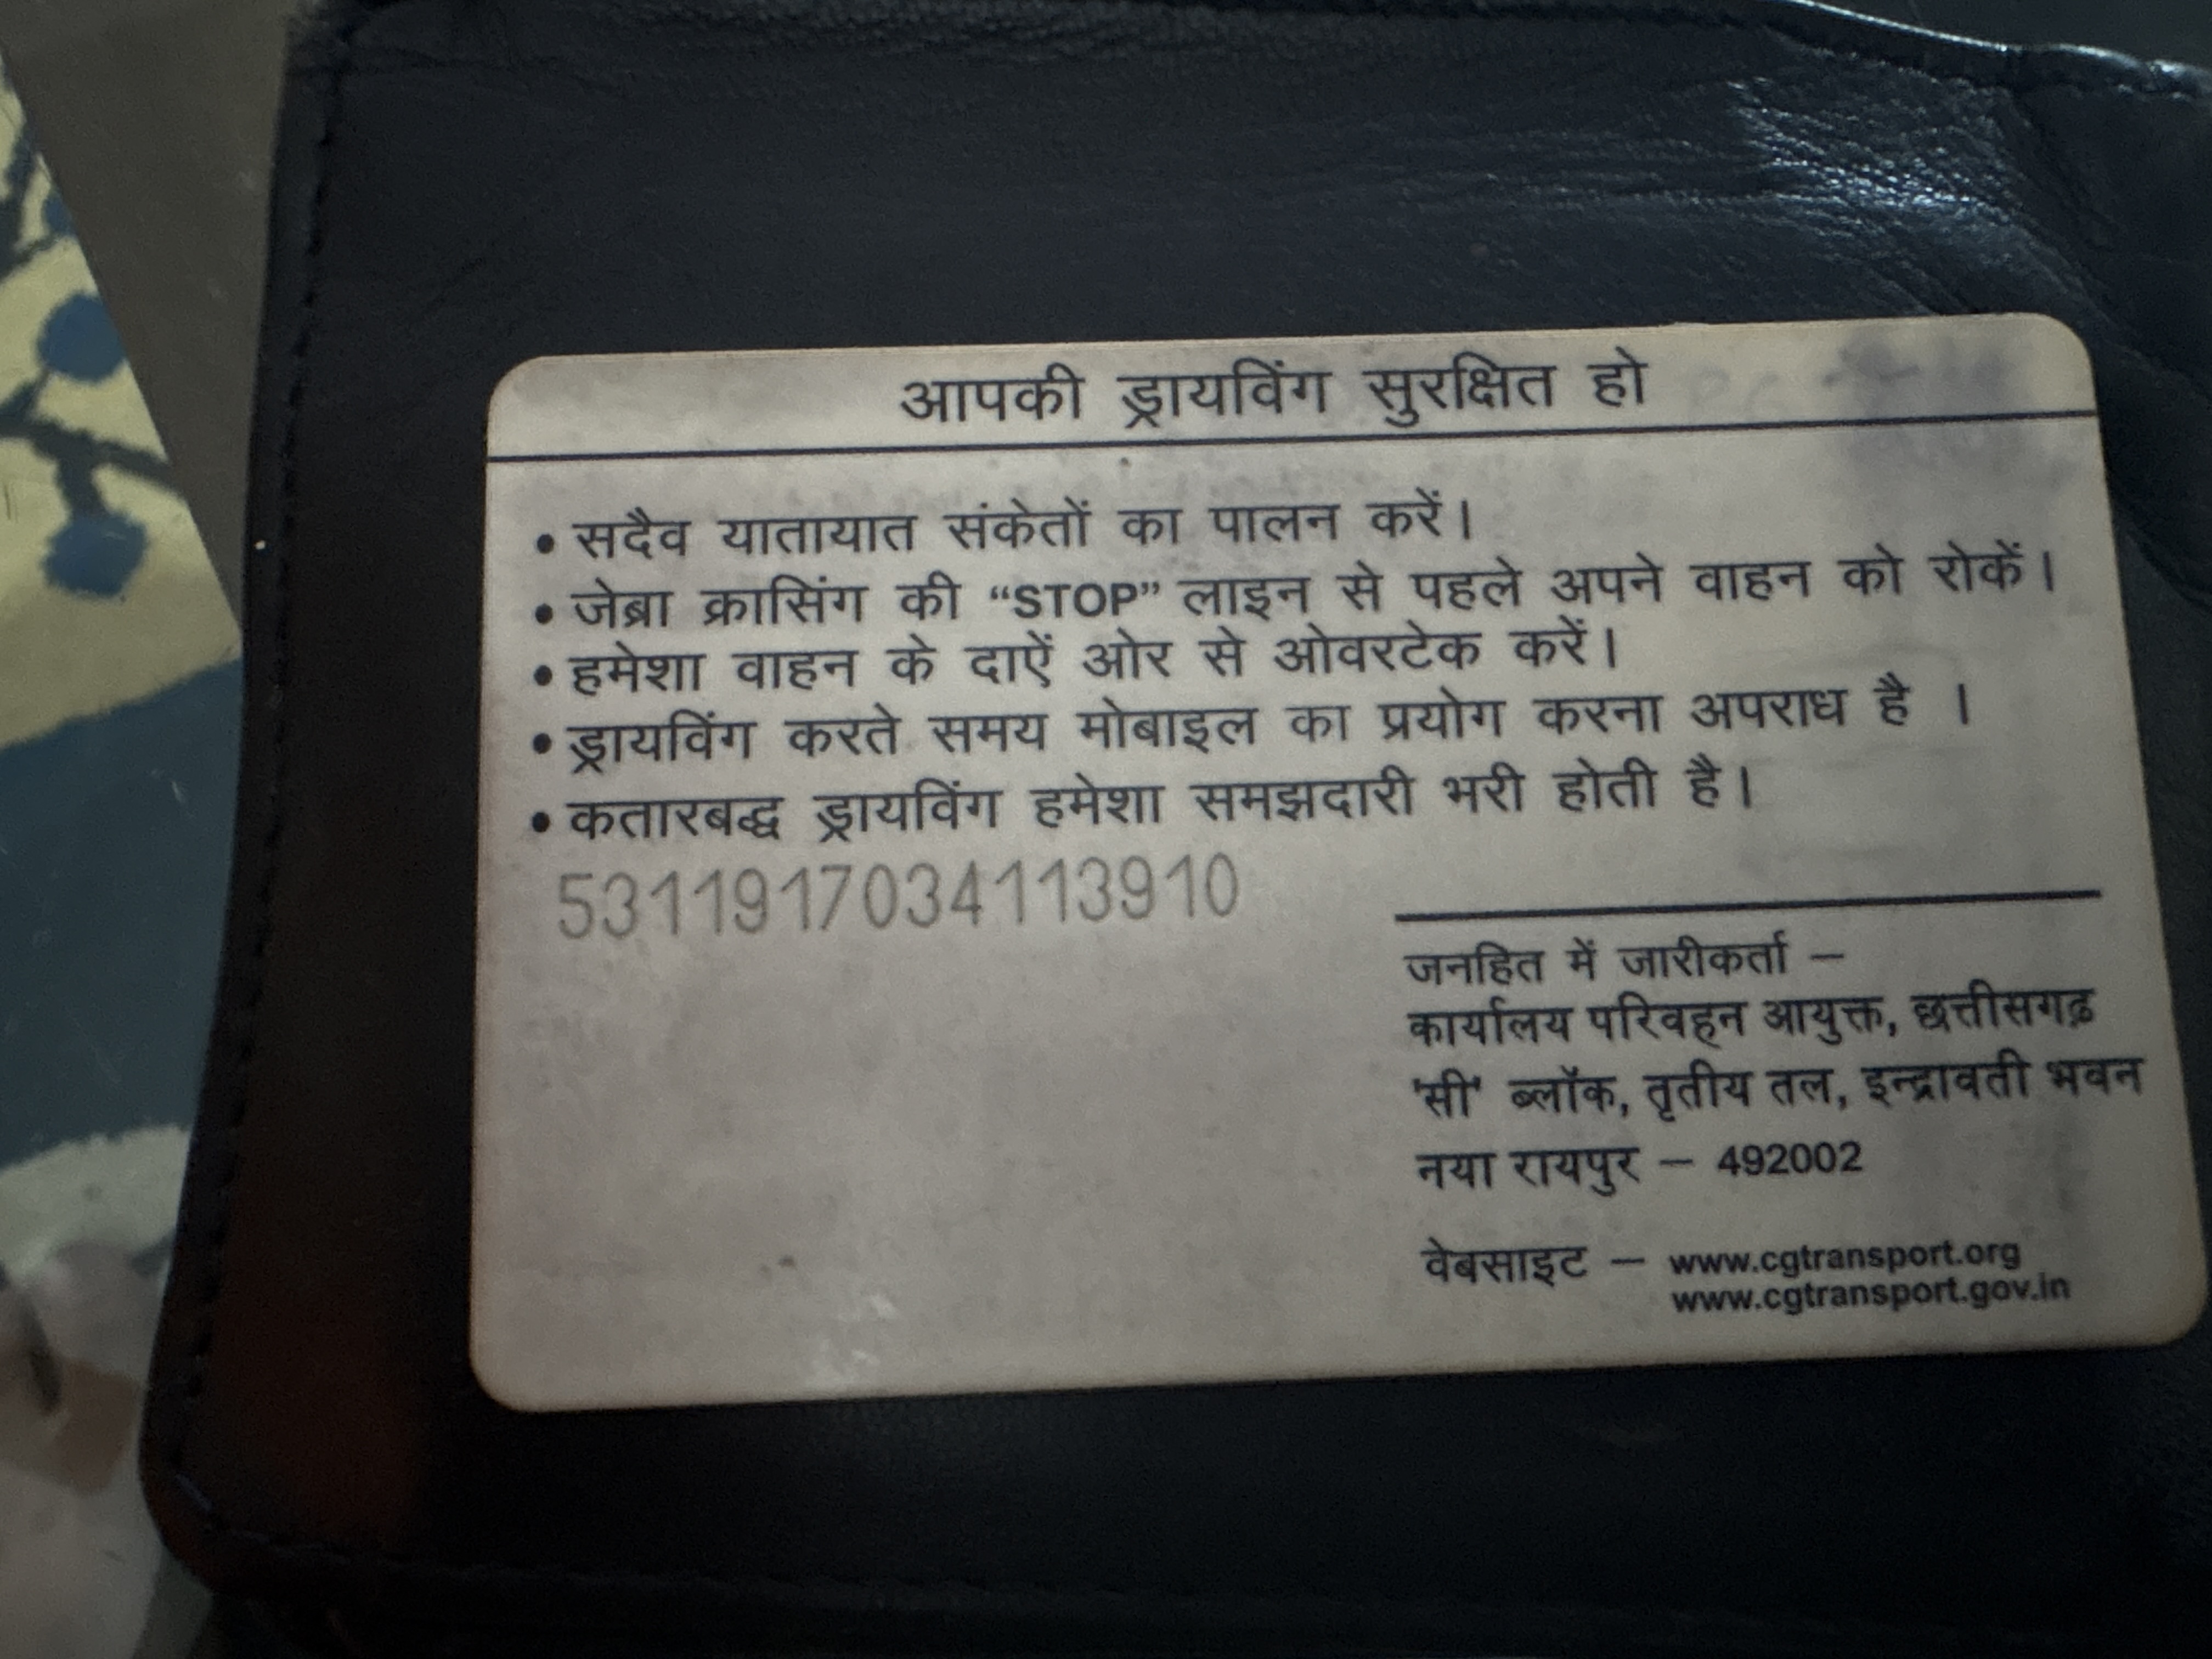 आपकी ड्रायविंग सुरक्षित हो
• सदैव यातायात संकेतों का पालन करें।
• जेब्रा क्रासिंग की “STOP” लाइन से पहले अपने वाहन को रोकें।
• हमेशा वाहन के दाऐं ओर से ओवरटेक करें।
• ड्रायविंग करते समय मोबाइल का प्रयोग करना अपराध है ।
• कतारबद्ध ड्रायविंग हमेशा समझदारी भरी होती है।
5311917034113910
जनहित में जारीकर्ता –
कार्यालय परिवहन आयुक्त, छत्तीसगढ़
'सी' ब्लॉक, तृतीय तल, इन्द्रावती भवन
नया रायपुर – 492002
वेबसाइट – www.cgtransport.org
www.cgtransport.gov.in